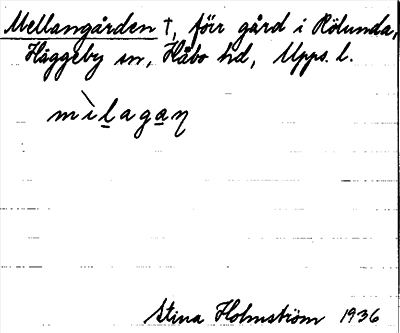 Mellangården †, förr gård i Rölunda,
Häggeby sn, Håbo hd, Upps. l.
mìl̲aga̲ŋ
Stina Holmström 1936